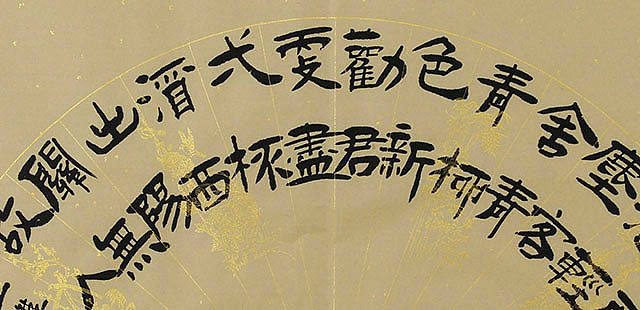 輕
塵客
舍青
青柳
色新
勸君
更盡
弌杯
酒西
出陽
關無
故人